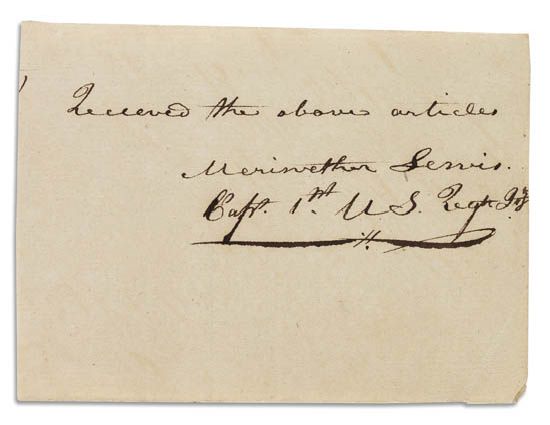 Received the above articles
Meriwether Lewis.
Capt. 1st. U S. Regt. Infy.